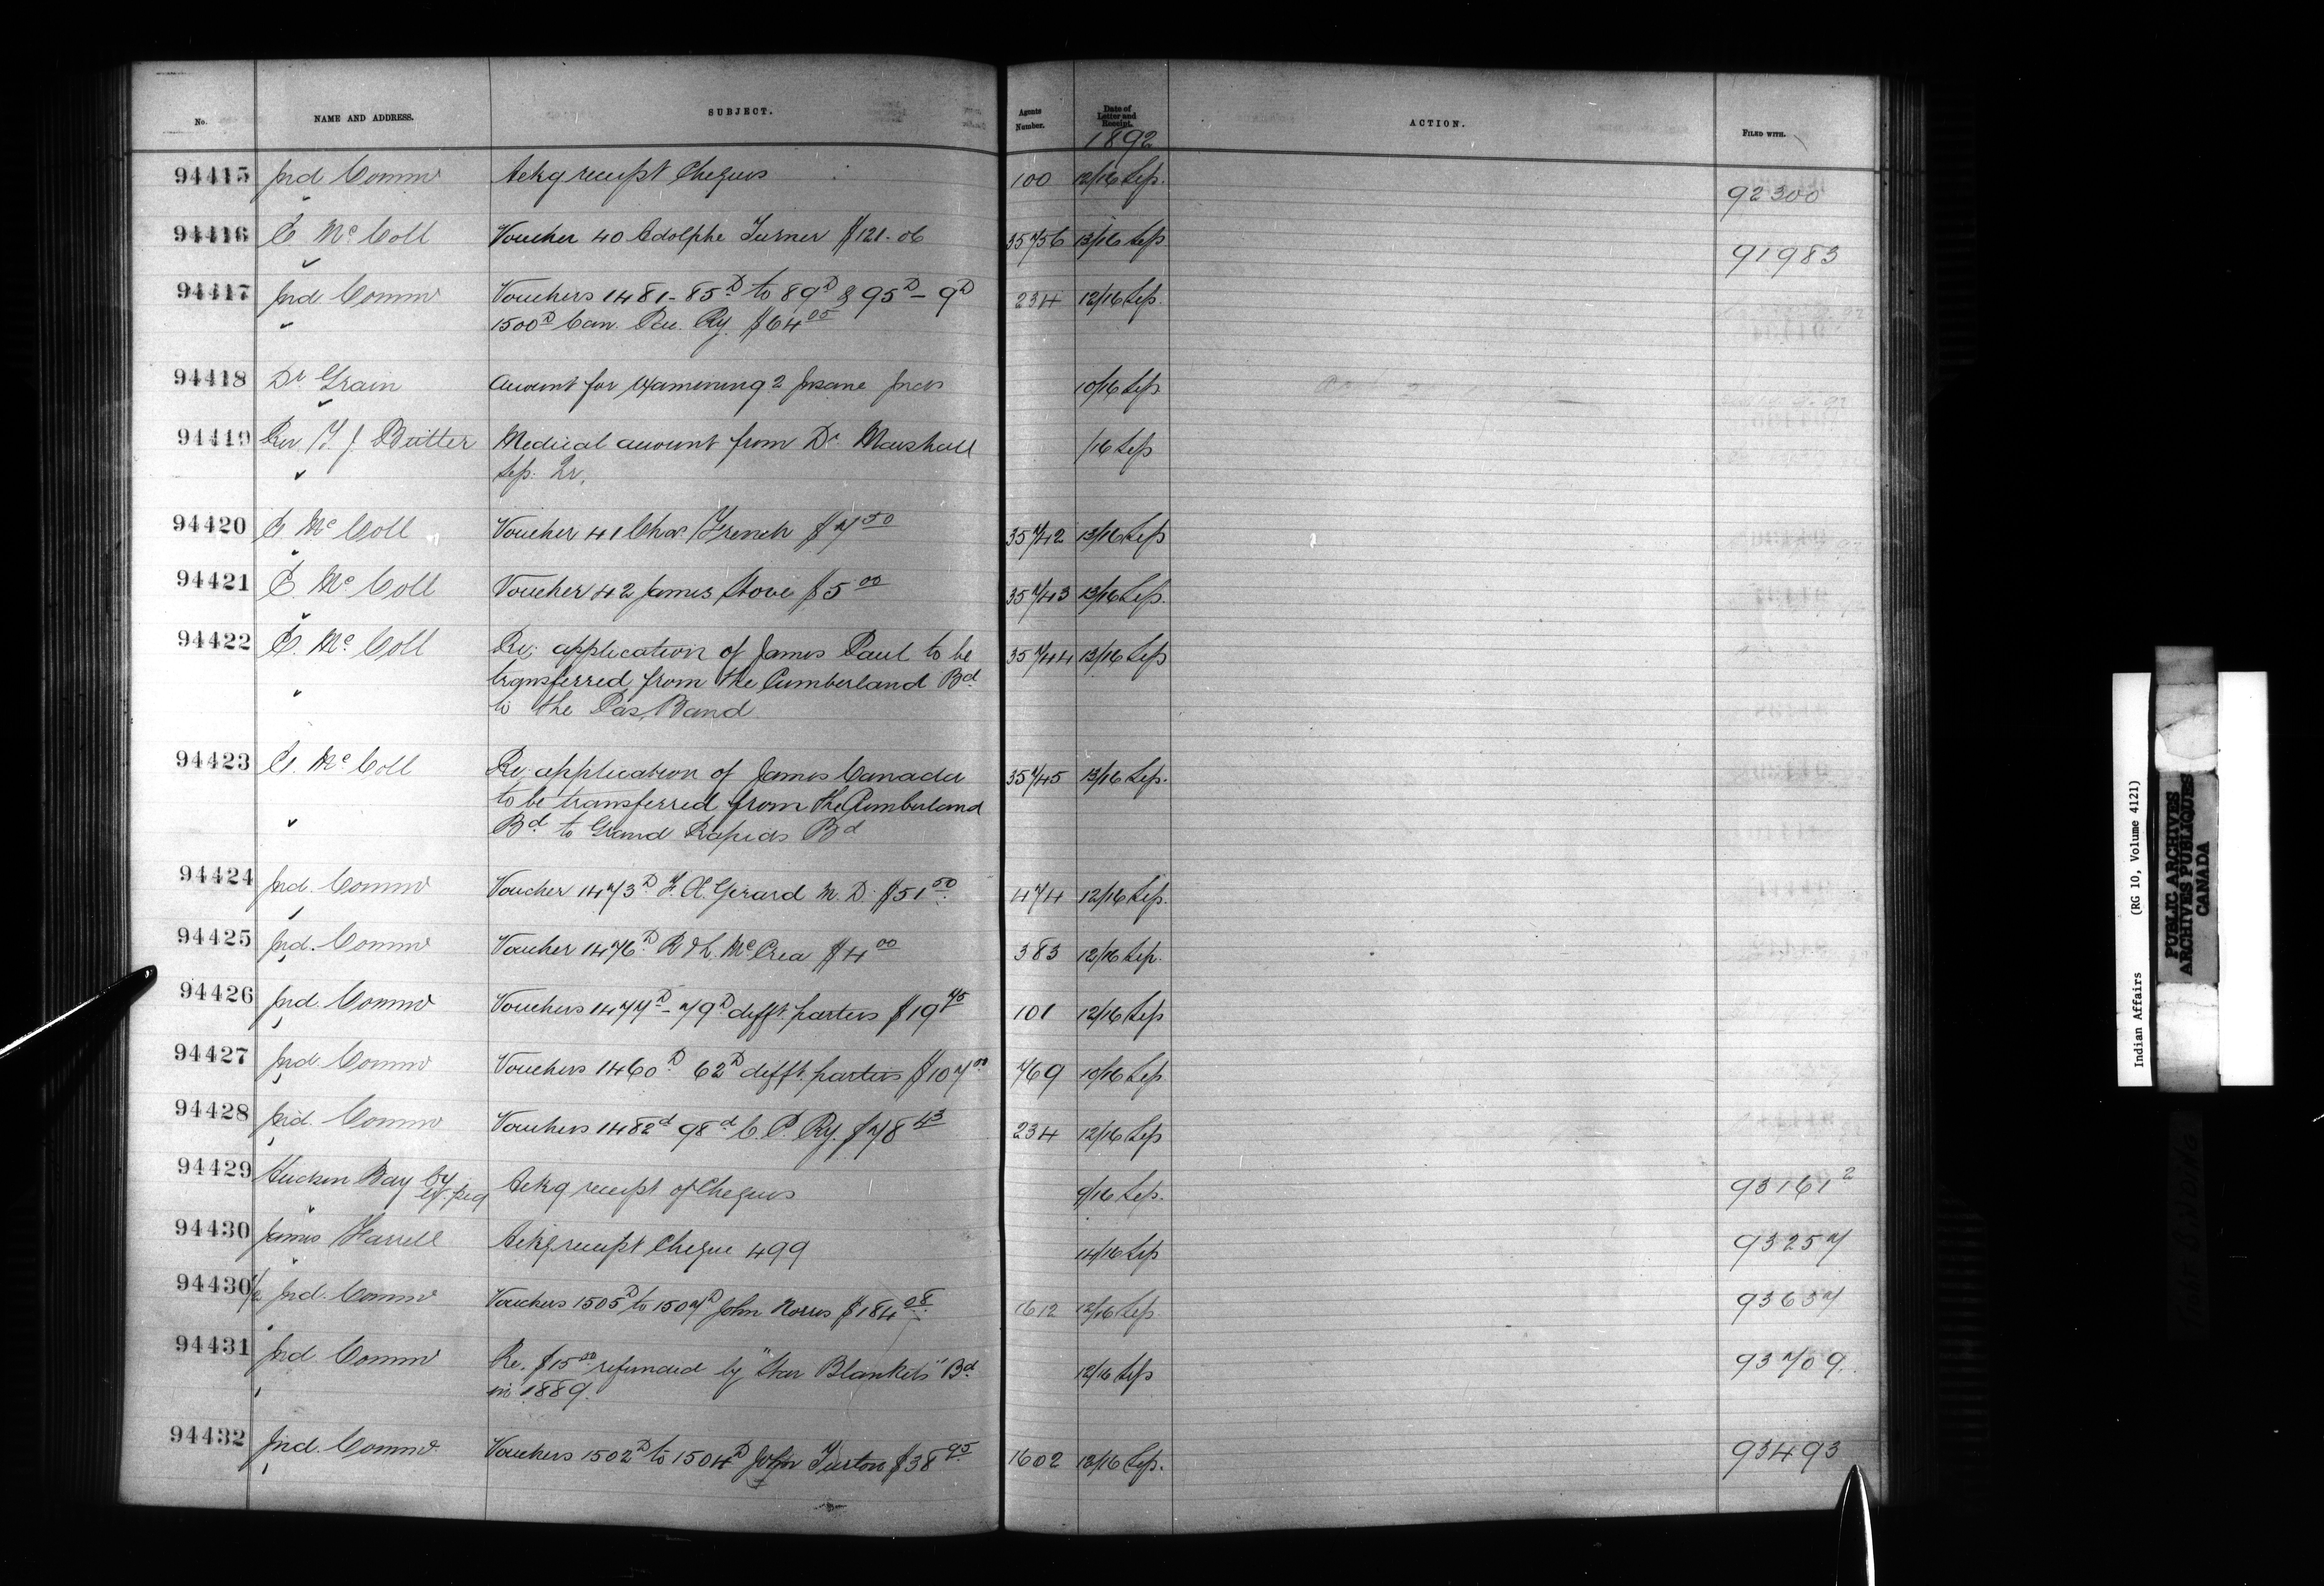 No. NAME AND ADDRESS. SUBJECT. Agents Number. Date of Letter and Receipt. ACTION. FILED WITH.
1892
94415 Ind. Commr Ackg receipt Cheques 100 12/16 Sep. 92300
94416 E. McColl Voucher 40 Adolphe Turner $121.06 35756 13/16 Sep 91983
94417 Ind. Commr Vouchers 1481-85D to 89D & 95D - 9D 234 12/16 Sep.
1500D Can. Pac. Ry. $64.05
94418 Dr Grain Account for examening 2 Insane Inds 10/16 Sep.
94419 Rev. J. Medical account from Dr. Marshall /16 Sep
Sep. Qr.
94420 E. McColl Voucher 41 Chas French $7.50 35742 13/16 Sep
94421 E. McColl Voucher 42 James $5.00 35743 13/16 Sep.
94422 E. McColl Re; application of James Paul to be 35744 13/16 Sep
transferred from the Cumberland Bd
to the Pas Band
94423 E. McColl Re; application of James Canada 35745 13/16 Sep.
to be transferred from the Cumberland
Bd to Grand Rapids Bd
94424 Ind. Commr Voucher 1473D F. X. Girard M. D. $51.50 474 12/16 Sep.
94425 Ind. Commr Voucher 1476D R & L McCrea $4.00 383 12/16 Sep.
94426 Ind. Commr Vouchers 1477D - 79D difft. parties $19.75 101 12/16 Sep
94427 Ind. Commr Vouchers 1460D 62D difft. parties $107.00 769 10/16 Sep
94428 Ind. Commr Vouchers 1482d 98d C. P. Ry. $78.43 234 12/16 Sep
94429 Hudson Bay Co Ackg receipt of Cheques 9/16 Sep. 93161 2
94430 James Harrell Ackg receipt Cheque 499 14/16 Sep 93257
94430 1/2 Ind. Commr Vouchers 1505D to 1507D John Norris $184.08 1612 12/16 Sep. 93637
94431 Ind. Commr Re. $15.00 refunded by "Star Blankets" Bd 12/16 Sep 93709.
in 1889.
94432 Ind. Commr Vouchers 1502D to 1504D John Turton $38.95 1602 12/16 Sep. 93493
Indian Affairs (RG 10, Volume 4121)
PUBLIC ARCHIVES
ARCHIVES PUBLIQUES
CANADA